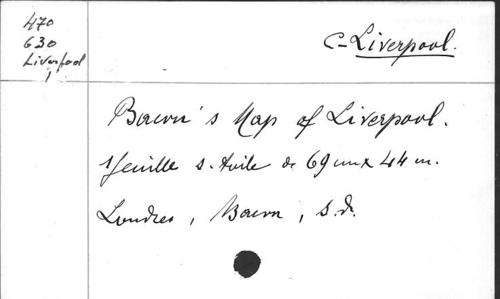 470
630
Liverpool
1
C-Liverpool.
Bacon's Map of Liverpool.
1 feuille s. toile de 69 cm x 44 cm.
Londres, Bacon, s.d.